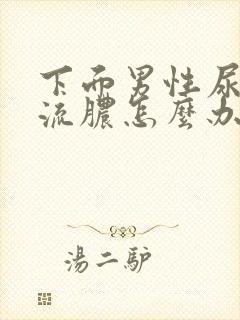 下面男性尿
流膿怎麼办
湯二驴